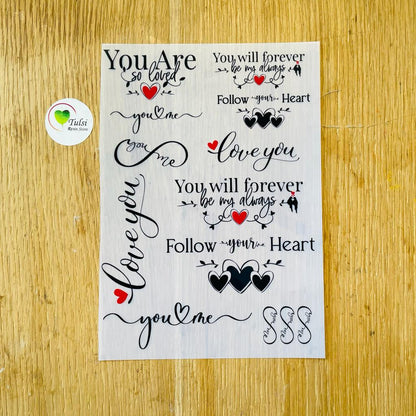 You Are
so loved
you me
you
me
love you
You will forever
be my always
Follow your Heart
love you
You will forever
be my always
Follow your Heart
you me
Tulsi
Resin Store